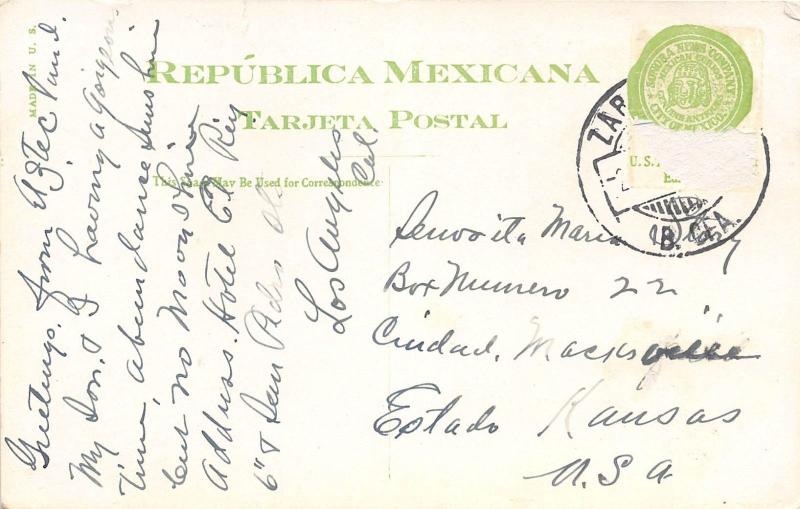 MADE IN U. S.
REPÚBLICA MEXICANA
TARJETA POSTAL
This Space May Be Used for Correspondence
SONORA NEWS COMPANY
CITY OF MEXICO
U. S.
ZAR
B. CFA.
Greetings from Aztec Land.
My Son & I having a gorgeous
time, abundance sunshine
but no Moon Shine
Address. Hotel El Rey
6" & San Pedro
Los Angeles
Cal.
Senorita Maria
Box Numero 22
Ciudad, Macksville
Estado Kansas
U.S.A